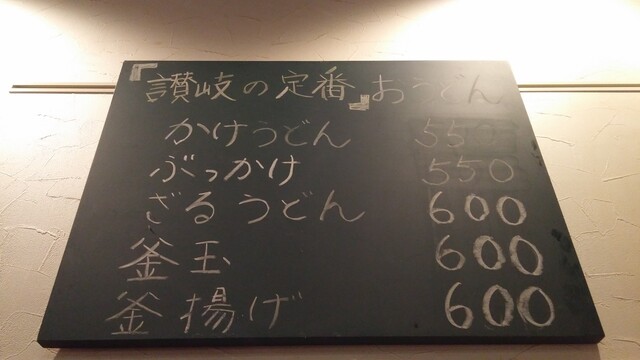 『讃岐の定番』おうどん
かけうどん 550
ぶっかけ 550
ざるうどん 600
釜玉 600
釜揚げ 600